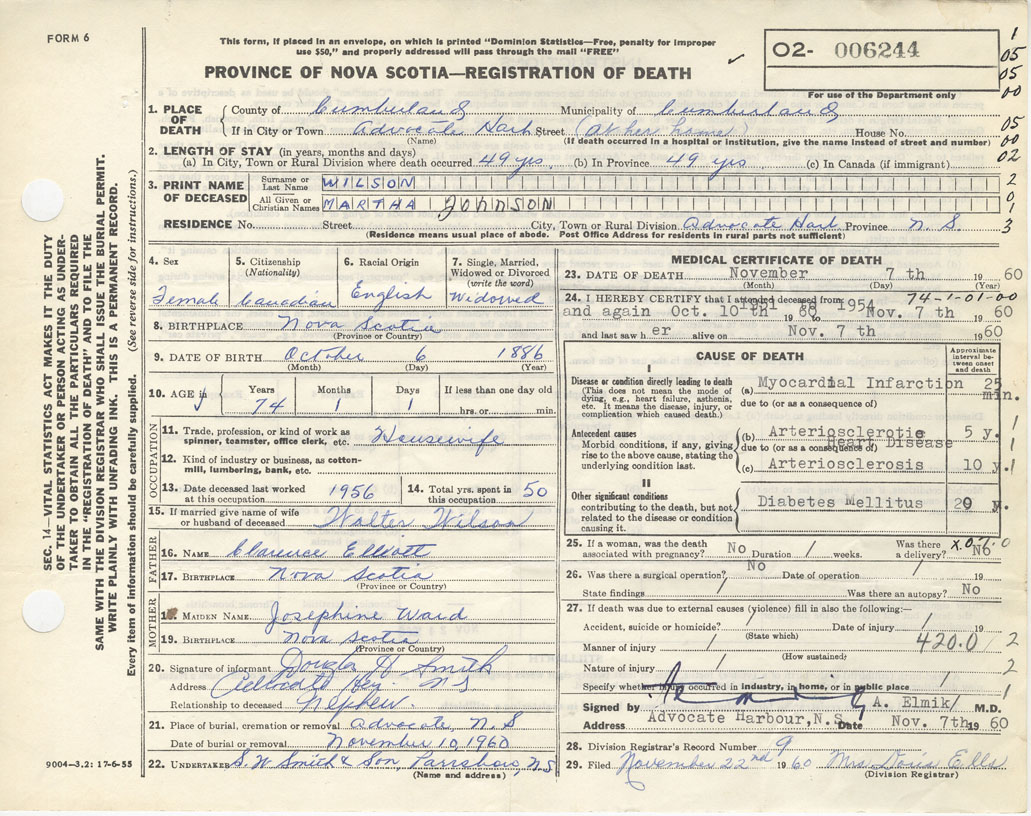 FORM 6
This form, if placed in an envelope, on which is printed "Dominion Statistics—Free, penalty for improper
use $50," and properly addressed will pass through the mail "FREE"
O2- 006244
For use of the Department only
PROVINCE OF NOVA SCOTIA—REGISTRATION OF DEATH
1
05
05
00
05
00
02
2
0
1
3
SEC. 14—VITAL STATISTICS ACT MAKES IT THE DUTY
OF THE UNDERTAKER OR PERSON ACTING AS UNDER-
TAKER TO OBTAIN ALL THE PARTICULARS REQUIRED
IN THE "REGISTRATION OF DEATH" AND TO FILE THE
SAME WITH THE DIVISION REGISTRAR WHO SHALL ISSUE THE BURIAL PERMIT.
WRITE PLAINLY WITH UNFADING INK. THIS IS A PERMANENT RECORD.
Every item of information should be carefully supplied. (See reverse side for instructions.)
1. PLACE OF DEATH County of Cumberland Municipality of Cumberland
If in City or Town Advocate Harb Street (at her home) House No.
(Name) (If death occurred in a hospital or institution, give the name instead of street and number)
2. LENGTH OF STAY (in years, months and days)
(a) In City, Town or Rural Division where death occurred 49 yrs. (b) In Province 49 yrs (c) In Canada (if immigrant)
3. PRINT NAME OF DECEASED Surname or Last Name WILSON
All Given or Christian Names MARTHA JOHNSON
RESIDENCE No. Street City, Town or Rural Division Advocate Harb Province N. S.
(Residence means usual place of abode. Post Office Address for residents in rural parts not sufficient)
4. Sex Female
5. Citizenship (Nationality) Canadian
6. Racial Origin English
7. Single, Married, Widowed or Divorced (write the word) Widowed
8. BIRTHPLACE Nova Scotia
(Province or Country)
9. DATE OF BIRTH October 6 1886
(Month) (Day) (Year)
10. AGE Years 74 Months 1 Days 1 If less than one day old hrs. or min.
OCCUPATION
11. Trade, profession, or kind of work as spinner, teamster, office clerk, etc. Housewife
12. Kind of industry or business, as cotton-mill, lumbering, bank, etc.
13. Date deceased last worked at this occupation 1956 14. Total yrs. spent in this occupation 50
15. If married give name of wife or husband of deceased Walter Wilson
FATHER
16. NAME Clarence Elliott
17. BIRTHPLACE Nova Scotia
(Province or Country)
MOTHER
18. MAIDEN NAME Josephine Ward
19. BIRTHPLACE Nova Scotia
(Province or Country)
20. Signature of informant Douglas H Smith
Address Advocate Hbr. N S
Relationship to deceased Nephew.
21. Place of burial, cremation or removal Advocate, N. S
Date of burial or removal November 10, 1960
22. UNDERTAKER S. W Smith & Son, Parrsboro, N.S
(Name and address)
9004—3.2: 17-6-55
MEDICAL CERTIFICATE OF DEATH
23. DATE OF DEATH November 7 th 19 60
(Month) (Day) (Year)
24. I HEREBY CERTIFY that I attended deceased from 1951 to 1954 74-1-01-00
and again Oct. 10 th 19 60 to Nov. 7 th 19 60
and last saw h er alive on Nov. 7 th 19 60
CAUSE OF DEATH
Approximate interval between onset and death
I
Disease or condition directly leading to death
(This does not mean the mode of dying, e.g., heart failure, asthenia, etc. It means the disease, injury, or complication which caused death.)
(a) Myocardial Infarction 25 min.
due to (or as a consequence of)
Antecedent causes
Morbid conditions, if any, giving rise to the above cause, stating the underlying condition last.
(b) Arteriosclerotic Heart Disease 5 y.
due to (or as a consequence of)
(c) Arteriosclerosis 10 y.
1
1
1
II
Other significant conditions
contributing to the death, but not related to the disease or condition causing it.
Diabetes Mellitus 20 y.
25. If a woman, was the death associated with pregnancy? No Duration / weeks. Was there a delivery? No
X.07.0
26. Was there a surgical operation? No Date of operation / 19
State findings / Was there an autopsy? No
27. If death was due to external causes (violence) fill in also the following:—
Accident, suicide or homicide? / Date of injury / 19
(State which)
Manner of injury / 420.0 / 2
(How sustained)
Nature of injury / 2
Specify whether injury occurred in industry, in home, or in public place / 1
Signed by A. Elmik/ M.D.
Address Advocate Harbour, N.S. Date Nov. 7th 19 60
28. Division Registrar's Record Number 9
29. Filed November 22nd 19 60 Mrs Doris Ells
(Division Registrar)